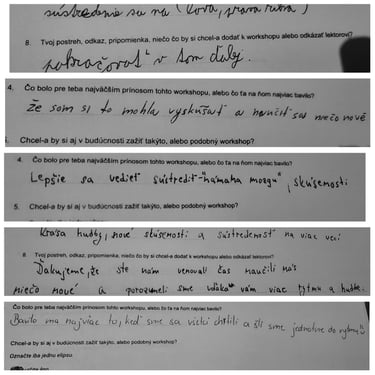 sústredenie sa na (ľavá, pravá ruka)
8. Tvoj postreh, odkaz, pripomienka, niečo čo by si chcel-a dodať k workshopu alebo odkázať lektorovi?
pokračovať v tom ďalej.
4. Čo bolo pre teba najväčším prínosom tohto workshopu, alebo čo ťa na ňom najviac bavilo?
že som si to mohla vyskúšať a naučiť sa niečo nové
5. Chcel-a by si aj v budúcnosti zažiť takýto, alebo podobný workshop?
4. Čo bolo pre teba najväčším prínosom tohto workshopu, alebo čo ťa na ňom najviac bavilo?
Lepšie sa vedieť sústrediť-"námaha mozgu", skúsenosti
5. Chcel-a by si aj v budúcnosti zažiť takýto, alebo podobný workshop?
Krása hudby, nové skúsenosti a sústredenosť na viac vecí
8. Tvoj postreh, odkaz, pripomienka, niečo čo by si chcel-a dodať k workshopu alebo odkázať lektorovi?
Ďakujeme, že ste nám venovali čas naučili nás
niečo nové a porozumeli sme vďaka vám viac rytmu a hudbe.
Čo bolo pre teba najväčším prínosom tohto workshopu, alebo čo ťa na ňom najviac bavilo?
Bavilo ma najviac to, keď sme sa všetci chytili a šli sme jednotne do rytmu
Chcel-a by si aj v budúcnosti zažiť takýto, alebo podobný workshop?
Označte iba jednu elipsu.